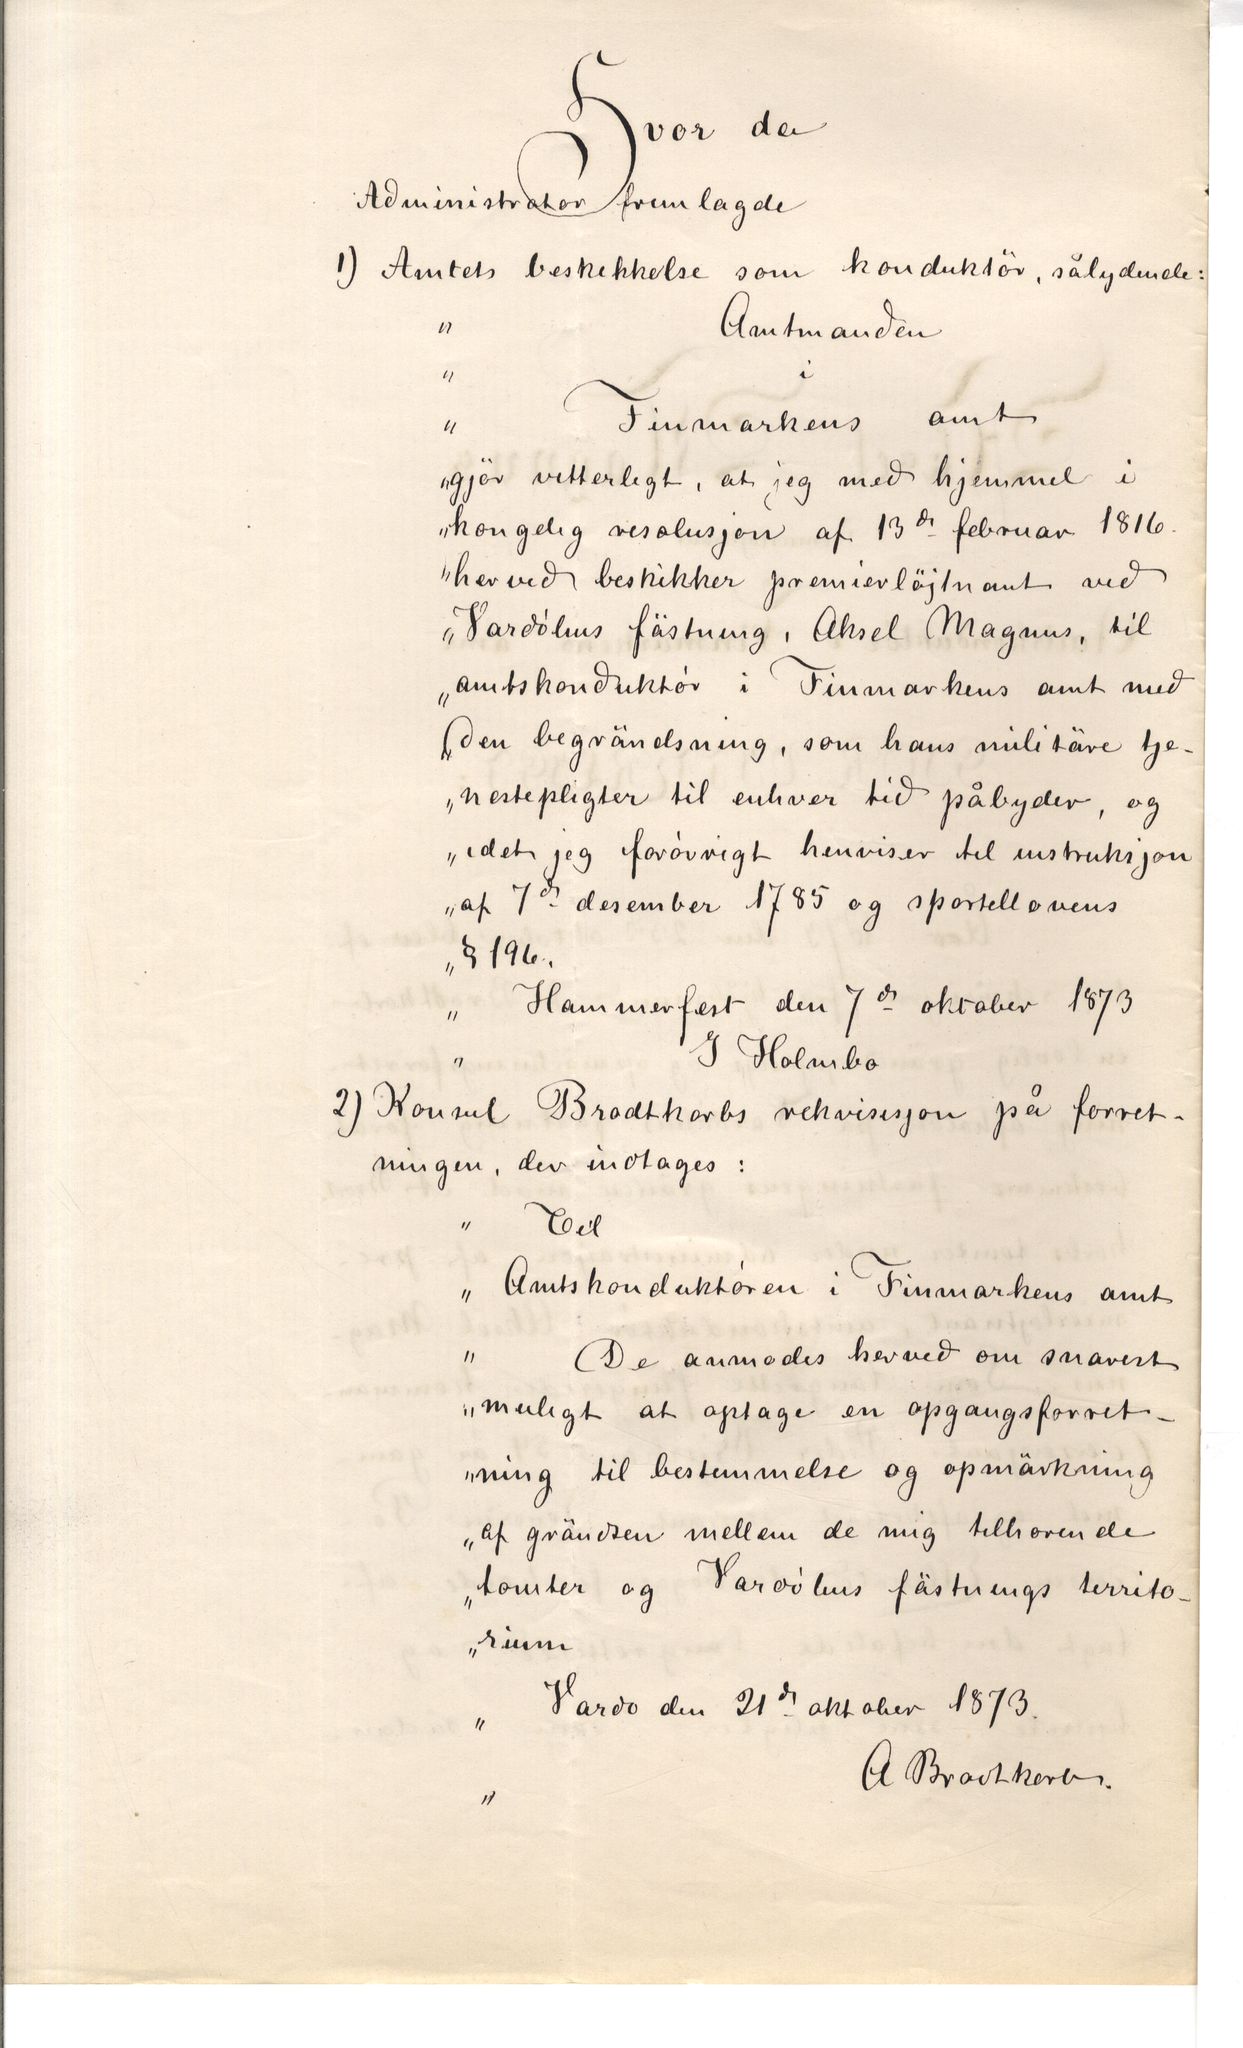 Hvor da
Administrator fremlagde
1) Amtets beskikkelse som konduktör, sålydende:
" Amtmanden
" i
" Finmarkens amt
„gjör vitterligt, at jeg med hjemmel i
„kongelig resolusjon af 13de februar 1816
"herved beskikker premierlöjtnant ved
„Vardöhus fästning, Aksel Magnus, til
„amtskonduktör i Finmarkens amt med
„den begrändsning, som hans militäre tje-
„nestepligter til enhver tid påbyder, og
„idet jeg forövrigt henviser til instruksjon
„af 7de desember 1785 og sportellovens
„§ 196.
„ Hammerfest den 7de oktober 1873
" J Holmbo
2) Konsul Brodtkorbs rekvisisjon på forret-
ningen, der indtages:
" Til
„ Amtskonduktören i Finmarkens amt
" De anmodes herved om snarest
„muligt at optage en opgangsforret-
"ning til bestemmelse og opmärkning
„af grändsen mellem de mig tilhörende
„tomter og Vardöhus fästnings territo-
„rium
„ Vardö den 21de oktober 1873.
" A Brodtkorb.